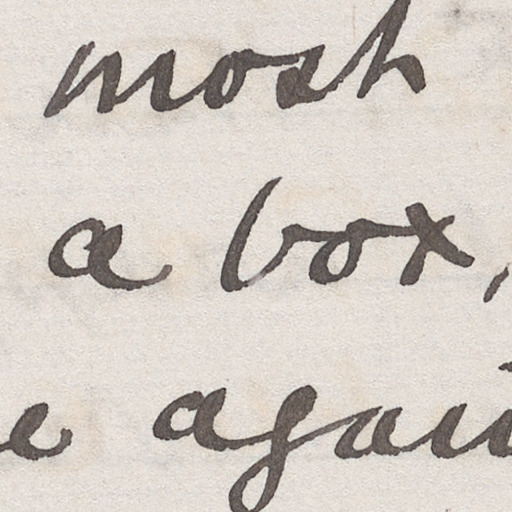 most
a box,
e again